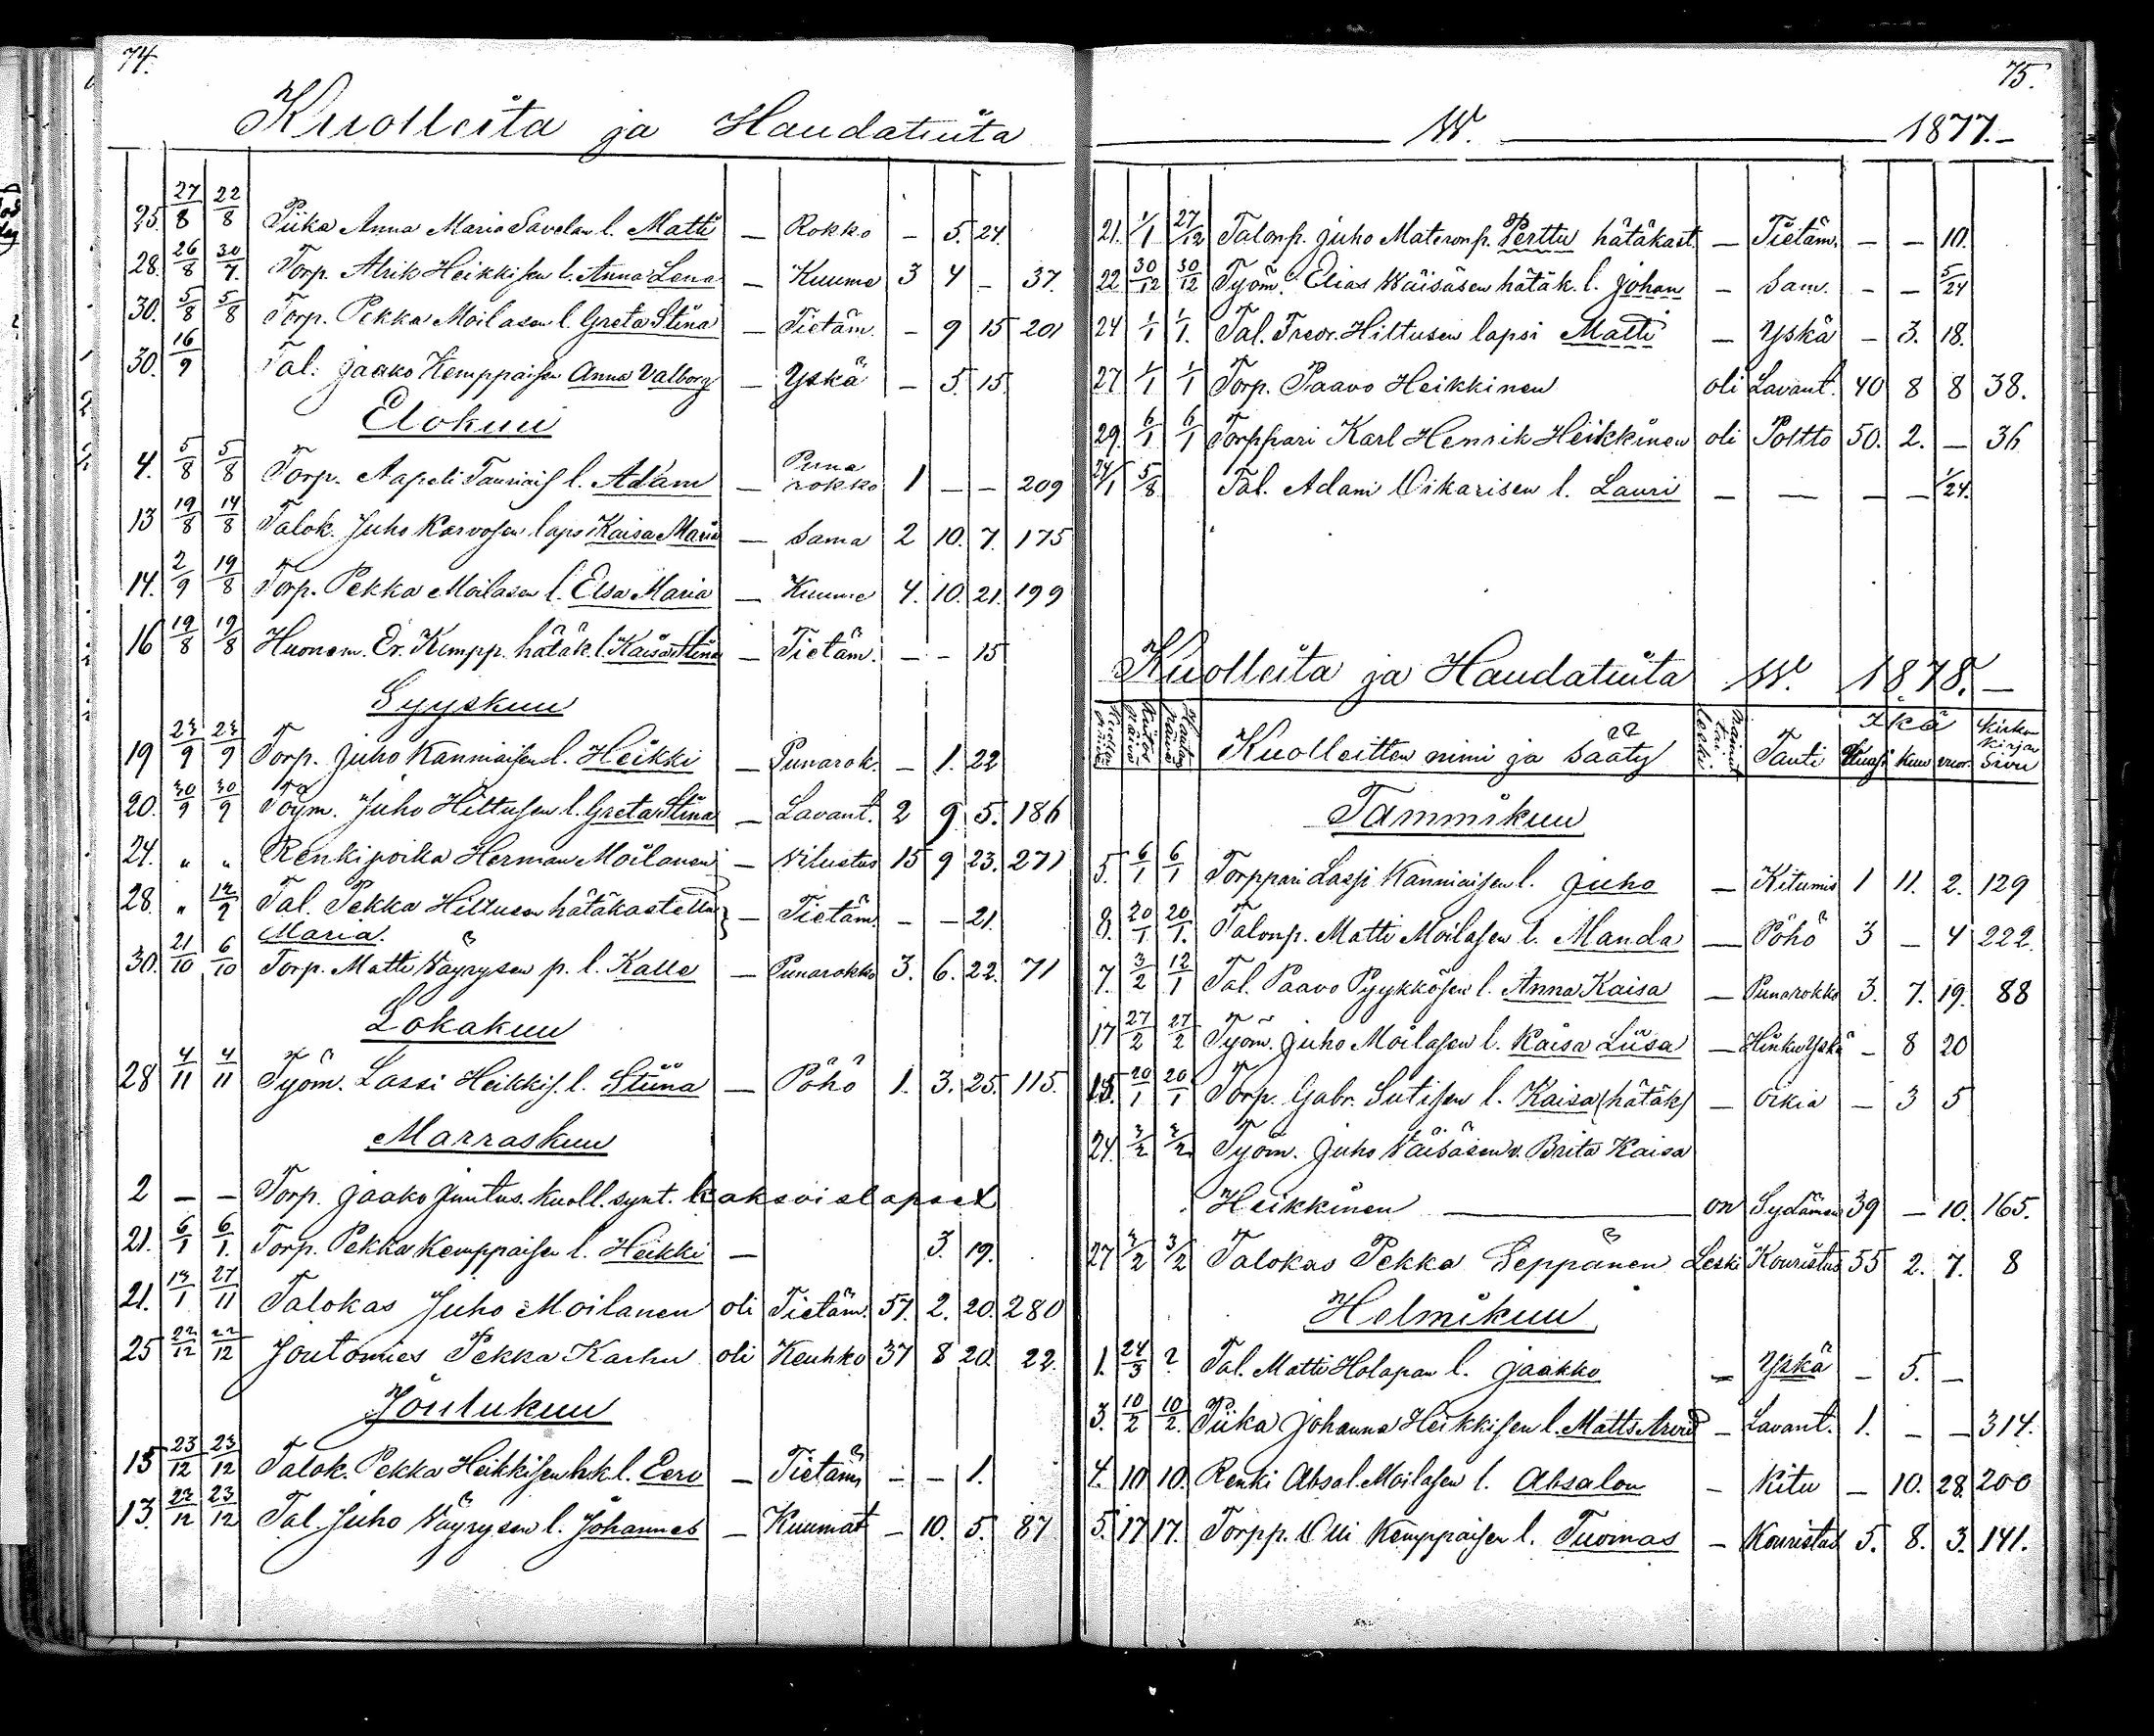 74.
Kuolleita ja Haudatuita
25. 27/8 22/8 Piika Anna Maria Savelan l. Matti — Rokko — 5. 24.
28. 26/8 30/7. Torp. Alrik Heikkisen l. Anna Lena — Kuume 3 4 — 37.
30. 5/8 5/8 Torp. Pekka Moilasen l. Greta Stina — Tietäm. — 9 15 201
30. 16/9 Tal. Jaako Kemppaisen Anna Valborg — Yskä — 5. 15.
Elokuu
4. 5/8 5/8 Torp. Aapeli l. Adam — Puna
rokko 1 — — 209
13 19/8 14/8 Talok. Juho Karvosen laps Kaisa Maria — Sama 2 10. 7. 175
14. 2/9 19/8 Torp. Pekka Moilasen l. Elsa Maria — Kuume 4. 10. 21. 199
16 19/8 19/8 Huonem. Er. Kempp. hätäk. l. Kaisa Stina — Tietäm. — — 15
Syyskuu
19 23/9 23/9 Torp. Juho Kanniaisen l. Heikki — Punarok. — 1. 22
20. 30/9 30/9 Töym. Juho Hiltusen l. Greta Stina — Lavant. 2 9. 5. 186
24. " " Renkipoika Herman Moilanen — Vilustus 15 9 23. 271
28. " 12/9 Tal. Pekka Hiltusen hätäkastettu } — Tietäm. — — 21.
Maria.
30. 21/10 6/10 Torp. Matti Väyrysen p. l. Kalle — Punarokko 3. 6. 22. 71
Lokakuu
28 4/11 4/11 Työm. Lassi Heikkis. l. Stiina — Pöhö 1. 3. 25. 115.
Marraskuu
2 — — Torp. Jaako Juntus. kuoll. synt. kaksoislapset
21. 6/1 6/1. Torp. Pekka Kemppaisen l. Heikki — 3. 19.
21. 13/1 27/11 Talokas Juho Moilanen oli Tietäm. 57. 2. 20. 280
25 22/12 22/12 Joutomies Pekka Karhu oli Keuhko 37 8 20. 22.
Joulukuu
15 23/12 23/12 Talok. Pekka Heikkisen hk l. Eero — Tietäm — — 1.
13. 23/12 23/12 Tal. Juho Väyrysen l. Johannes — Kuumat — 10. 5. 87
75.
W. 1877.—
21. 1/1 27/12 Talonp. Juho Materonp. Perttu hätäkast. — Tietäm. — — 10.
22 30/12 30/12 Työm. Elias Wäisäsen hätäk. l. Johan — Sam. — — 5/24
24 1/1 1/1. Tal. Hiltusen lapsi Matti — Yskä — 3. 18.
27 1/1 1/1 Torp. Paavo Heikkinen oli Lavant. 40 8 8 38.
29. 6/1 6/1 Torppari Karl Henrik Heikkinen oli Poltto 50. 2. — 36
24/1 5/8 Tal. Adam Wikarisen l. Lauri — — — — 1/24.
Kuolleita ja Haudatuita W. 1878.—
Kuolleitten nimi ja sääty Tauti Ikä Kirkon
kirjan
sivu
Tammikuu
5. 6/1 6/1 Torppari Lassi Kanniaisen l. Juho — Kitumis 1 11. 2. 129
8. 20/1 20/1. Talonp. Matti Moilasen l. Manda — Pöhö 3 — 4 222.
7. 3/2 12/1 Tal. Paavo Pyykkösen l. Anna Kaisa — Punarokko 3. 7. 19. 88
17 27/2 27/2 Työm. Juho Moilasen l. Kaisa Liisa — Hinkuyskä — 8 20
15. 20/1 20/1 Torp. Gabr. Sutisen l. Kaisa (hätäk) — Oikia — 3 5
24. 3/2 3/2 Työm. Juho Väisäsen v. Brita Kaisa
Heikkinen — on Sydämen 39 — 10. 165.
27 3/2 3/2 Talokas Pekka Seppänen Leski Kouristus 55 2. 7. 8
Helmikuu
1. 24/3 ? Tal. Matti Holapan l. Jaakko — Yskä — 5. —
3. 10/2 10/2. Piika Johanna Heikkisen l. Matts Arvid — Lavant. 1. — — 314.
4. 10 10. Renki Absal. Moilasen l. Absalon — Kitu — 10. 28. 200
5. 17 17. Torpp. Olli Kemppaisen l. Tuomas — Kouristus 5. 8. 3. 141.